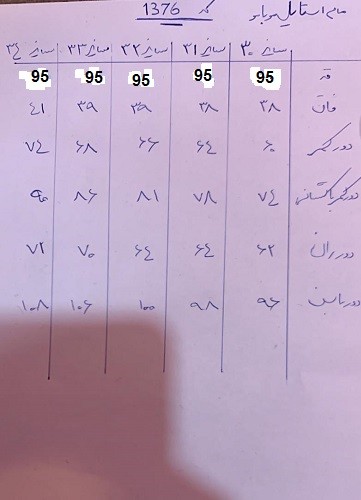 مام استایل موبایو کد 1376
سایز ۳۰ سایز ۳۱ سایز ۳۲ سایز ۳۳ سایز ۳٤
قد 95 95 95 95 95
فاق ۳۸ ۳۸ ۳۹ ۳۹ ٤۱
دور کمر ۶۰ ۶٤ ۶۶ ۶۸ ۷٤
دور کمر باکشش ۷٤ ۷۸ ۸۱ ۸۶ ۹۰
دور ران ۶۲ ۶٤ ۶٤ ۷۰ ۷۲
دور باسن ۹۶ ۹۸ ۱۰۰ ۱۰۶ ۱۰۸